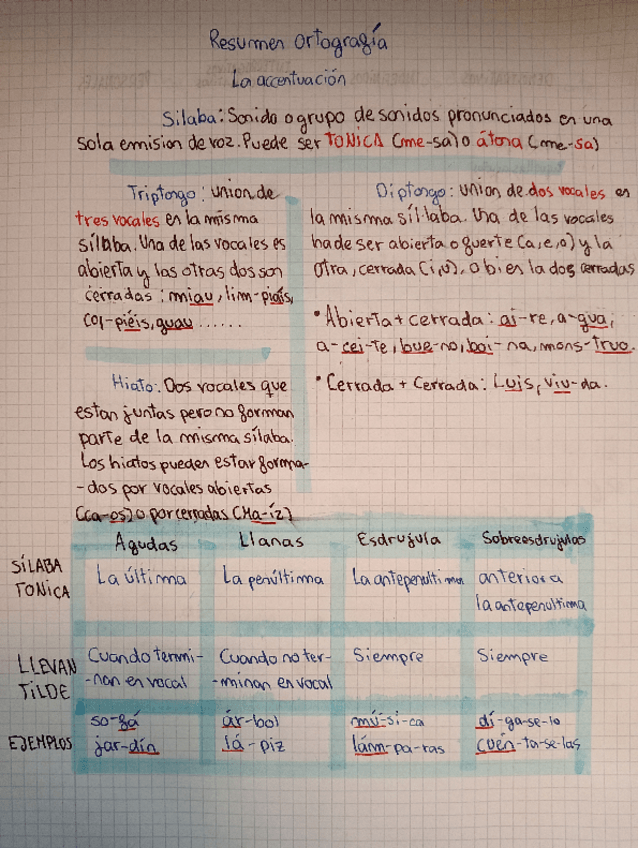 Resumen Ortografía
La accentuación
Sílaba: Sonido o grupo de sonidos pronunciados en una
sola emision de voz. Puede ser TONICA (me-sa) o átona (me-sa)
Triptongo: union de
tres vocales en la misma
sílaba. Una de las vocales es
abierta y las otras dos son
cerradas: miau, lim-piáis,
co,-piéis, guau ......
Hiato: Dos vocales que
estan juntas pero no forman
parte de la misma sílaba.
Los hiatos pueden estar forma-
-dos por vocales abiertas
(ca-os) o por cerradas (Ma-íz)
Diptongo: union de dos vocales en
la misma síl·laba. Una de las vocales
ha de ser abierta o fuerte (a,e,o) y la
otra, cerrada (i,u), o bien la dos cerradas
• Abierta + cerrada: ai-re, a-gua,
a-cei-te, bue-no, boi-na, mons-truo.
• Cerrada + Cerrada: Luis, viu-da.
Agudas Llanas Esdrujula Sobreesdrujulas
SÍLABA TONICA La última La penúltima La antepenultima anterior a
la antepenultima
LLEVAN TILDE Cuando termi- Cuando no ter- Siempre Siempre
-nan en vocal -minan en vocal
EJEMPLOS so-fá ár-bol mú-si-ca dí-ga-se-lo
jar-dín lá-piz lám-pa-ras cuén-ta-se-las